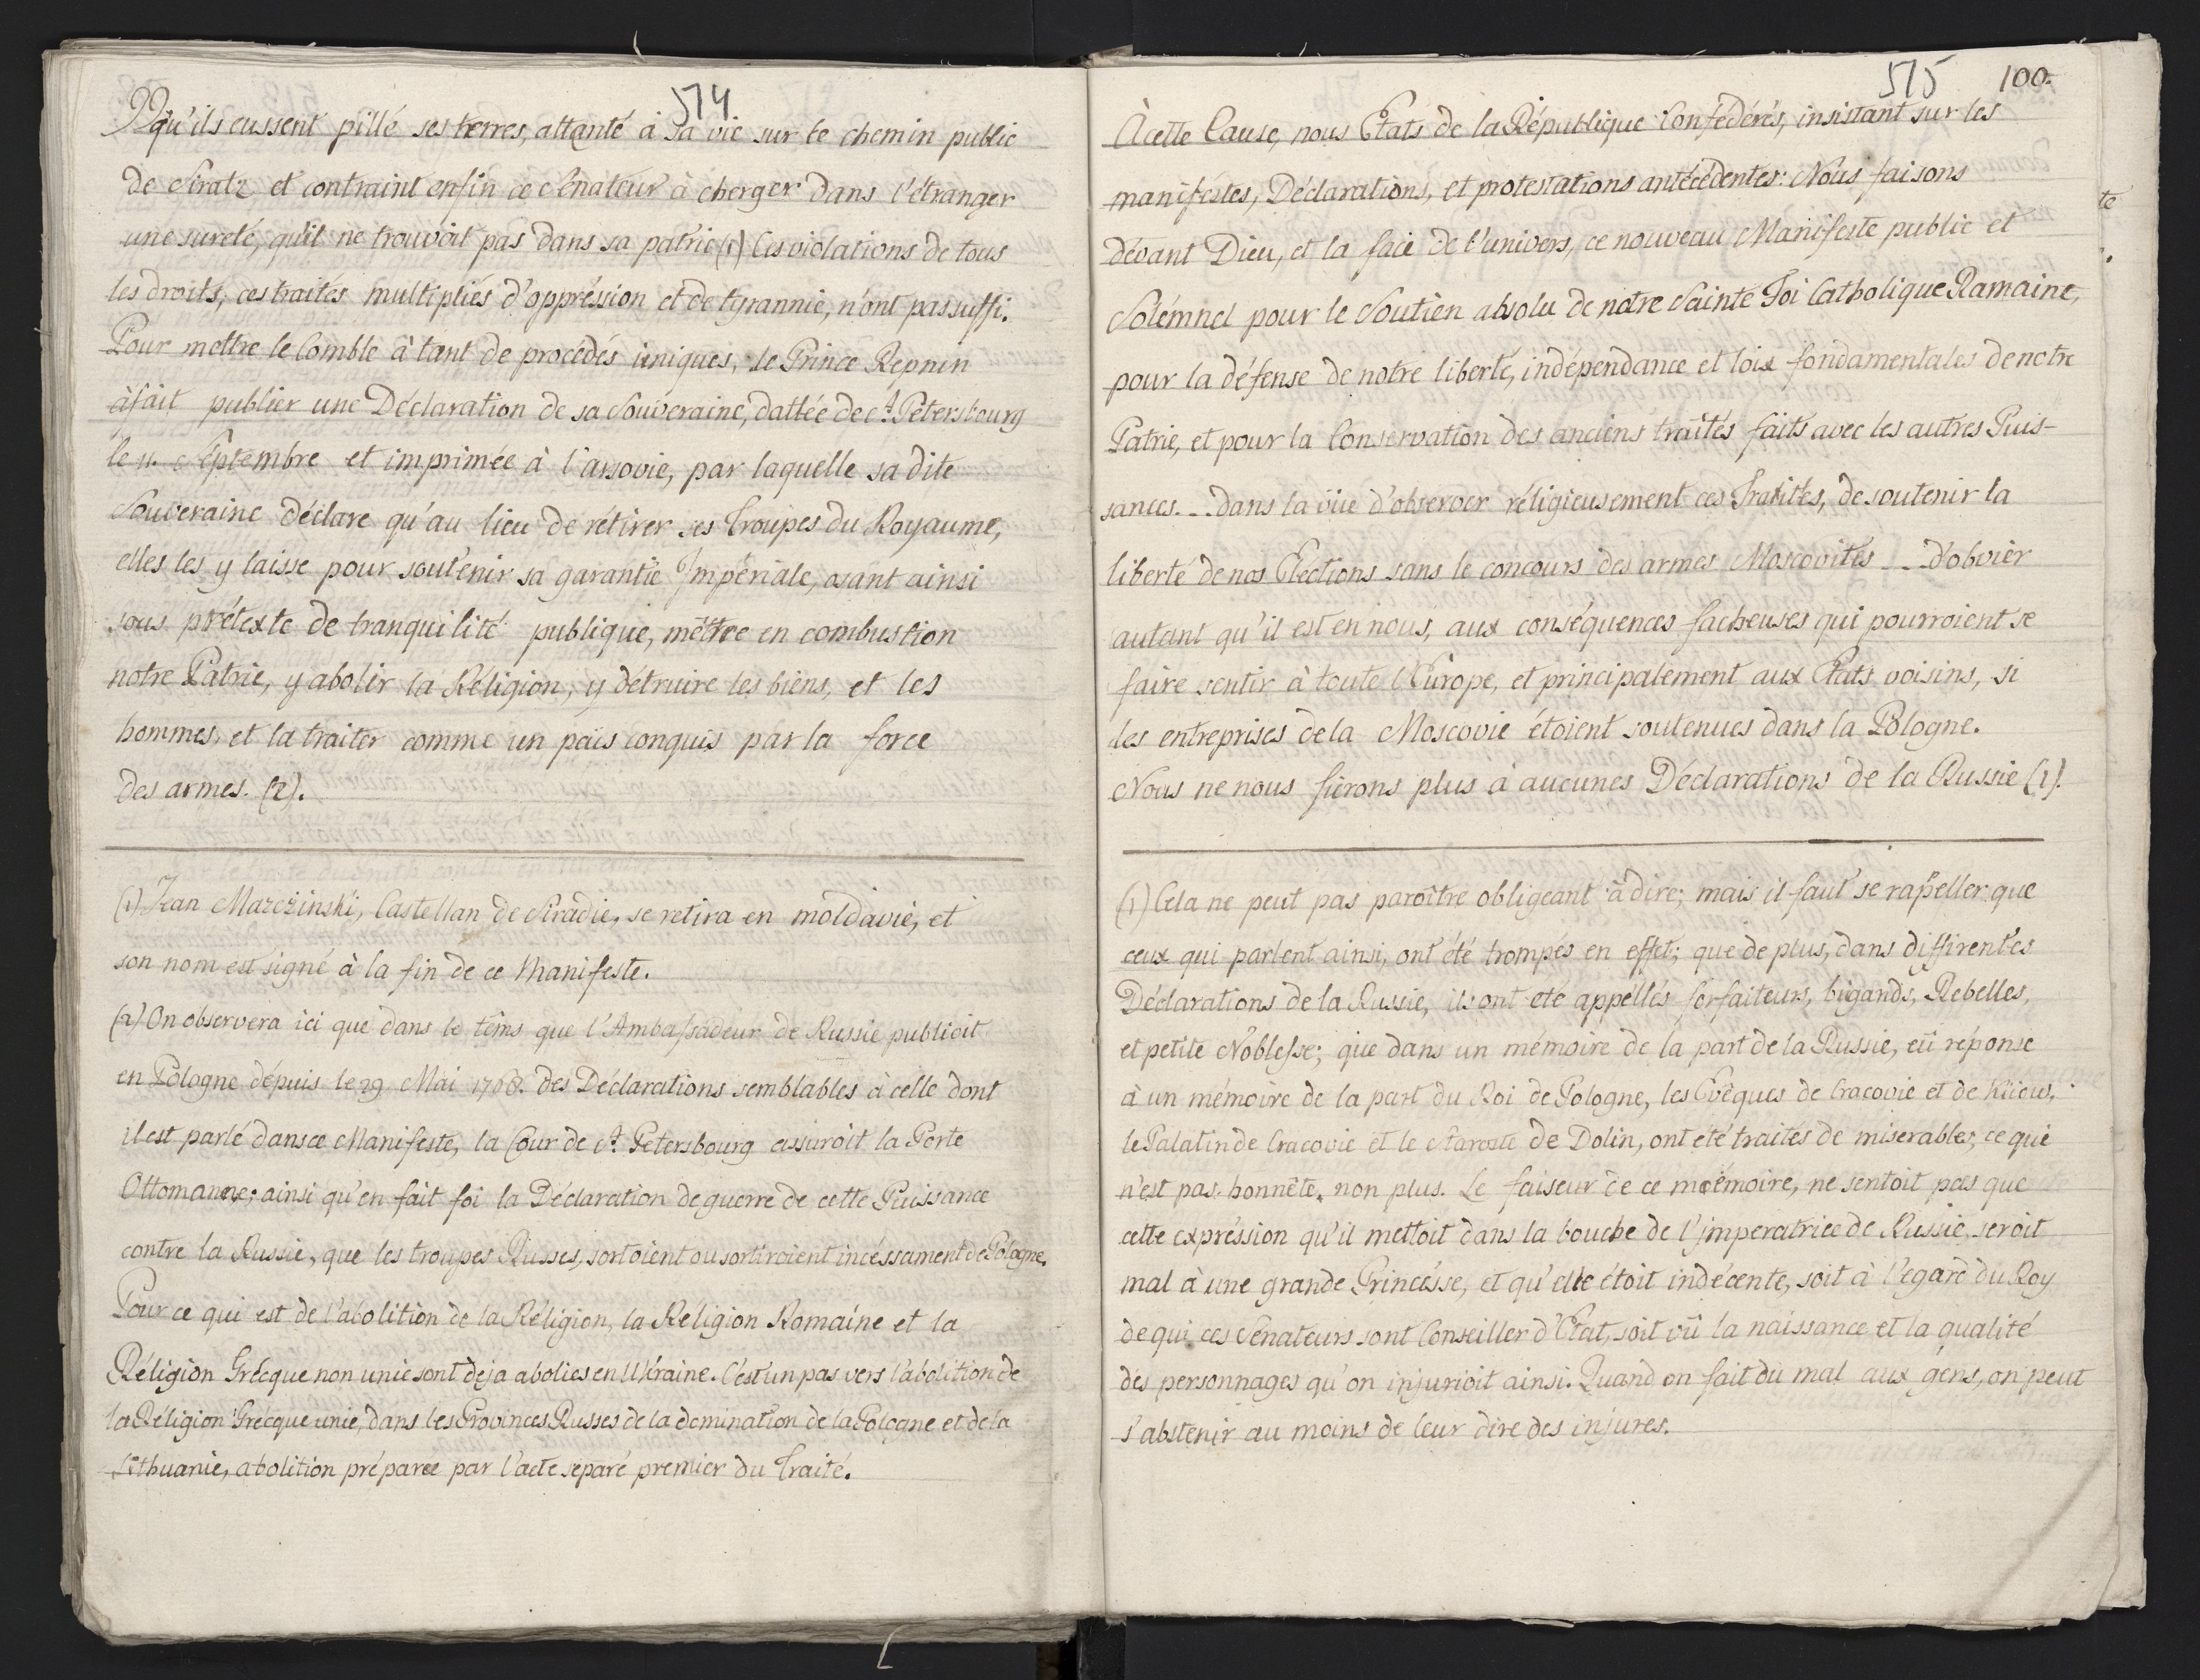 574
qu'ils eussent pillé ses terres, attanté à sa vie sur le chemin public
de Siratz et contraint enfin ce Sénateur à cherger dans l'étranger
une sureté, qu'il ne trouvoit pas dans sa patrie (1) Ces violations de tous
les droits, ces traités multipliés d'oppréssion et de tyrannie, n'ont pas suffi.
Pour mettre le Comble à tant de procédés iniques, le Prince Repnin
à fait publier une Déclaration de sa Souveraine, dattée de St. Petersbourg
le 11. Septembre et imprimée à Varsovie, par laquelle sa dite
Souveraine déclare qu'au lieu de rétirer ses Troupes du Royaume,
elles les y laisse pour soutenir sa garantie Impériale, osant ainsi
sous prétexte de tranquilité publique, méttre en combustion
notre Patrie, y abolir la Réligion, y détruire les biens, et les
hommes, et la traiter comme un païs conquis par la force
des armes. (2).
(1) Jean Marczinski, Castellan de Siradie, se retira en moldavie, et
son nom est signé à la fin de ce Manifeste.
(2) On observera ici que dans le téms que l'Ambassadeur de Russie publioit
en Pologne dépuis le 29 Mai 1768. des Déclarations semblables à celle dont
il est parlé dans ce Manifeste, la Cour de St. Petersbourg assuroit la Porte
Ottomanne; ainsi qu'en fait foi la Déclaration de guerre de cette Puissance
contre la Russie, que les troupes Russes, sortoient ou sortiroient incéssament de Pologne.
Pour ce qui est de l'abolition de la Réligion, la Réligion Romaine et la
Réligion Grécque non unie sont deja abolies en Ukraine. C'est un pas vers l'abolition de
la Réligion Grécque unie, dans les Provinces Russes de la domination de la Pologne et de la
Lithuanie, abolition préparée par l'acte separé premier du Traité.
575 100.
À cette Cause, nous Etats de la République Confédérés, insistant sur les
manifestes, Déclarations, et protestations antécédentes: Nous faisons
dévant Dieu, et la face de l'univers, ce nouveau Manifeste public et
Solémnel pour le Soutien absolu de notre Sainte Foi Catholique Ramaine,
pour la défense de notre liberté, indépendance et loix fondamentales de notre
Patrie, et pour la Conservation des anciens traités faits avec les autres Puis-
sances... dans la vüe d'observer réligieusement ces Traités, de soutenir la
liberté de nos Elections sans le concours des armes Moscovites ... d'obvier
autant qu'il est en nous, aux conséquences facheuses qui pourroient se
faire sentir à toute l'Europe, et principalement aux Etats voisins, si
les entreprises de la Moscovie étoient soutenues dans la Pologne.
Nous ne nous fierons plus à aucunes Déclarations de la Russie (1).
(1) Cela ne peut pas paroître obligeant à dire; mais il faut se rappeller que
ceux qui parlent ainsi, ont été trompés en effet; que de plus, dans diffirentes
Déclarations de la Russie, ils ont eté appéllés forfaiteurs, bigands, Rebelles,
et petite Noblesse; que dans un mémoire de la part de la Russie, eü réponse
à un mémoire de la part du Roi de Pologne, les Evêques de Cracovie et de Kiiow,
le Palatin de Cracovie et le Staroste de Dolin, ont été traités de miserables, ce qui
n'est pas honnête, non plus. Le faiseur de ce mémoire, ne sentoit pas que
cette expréssion qu'il mettoit dans la bouche de l'imperatrice de Russie, seroit
mal à une grande Princésse, et qu'elle étoit indécente, soit à l'egard du Roy
de qui ces Sénateurs sont Conseiller d'Etat, soit vû la naissance et la qualité
des personnages qu'on injurioit ainsi. Quand on fait du mal aux gens, on peut
s'abstenir au moins de leur dire des injures.
te